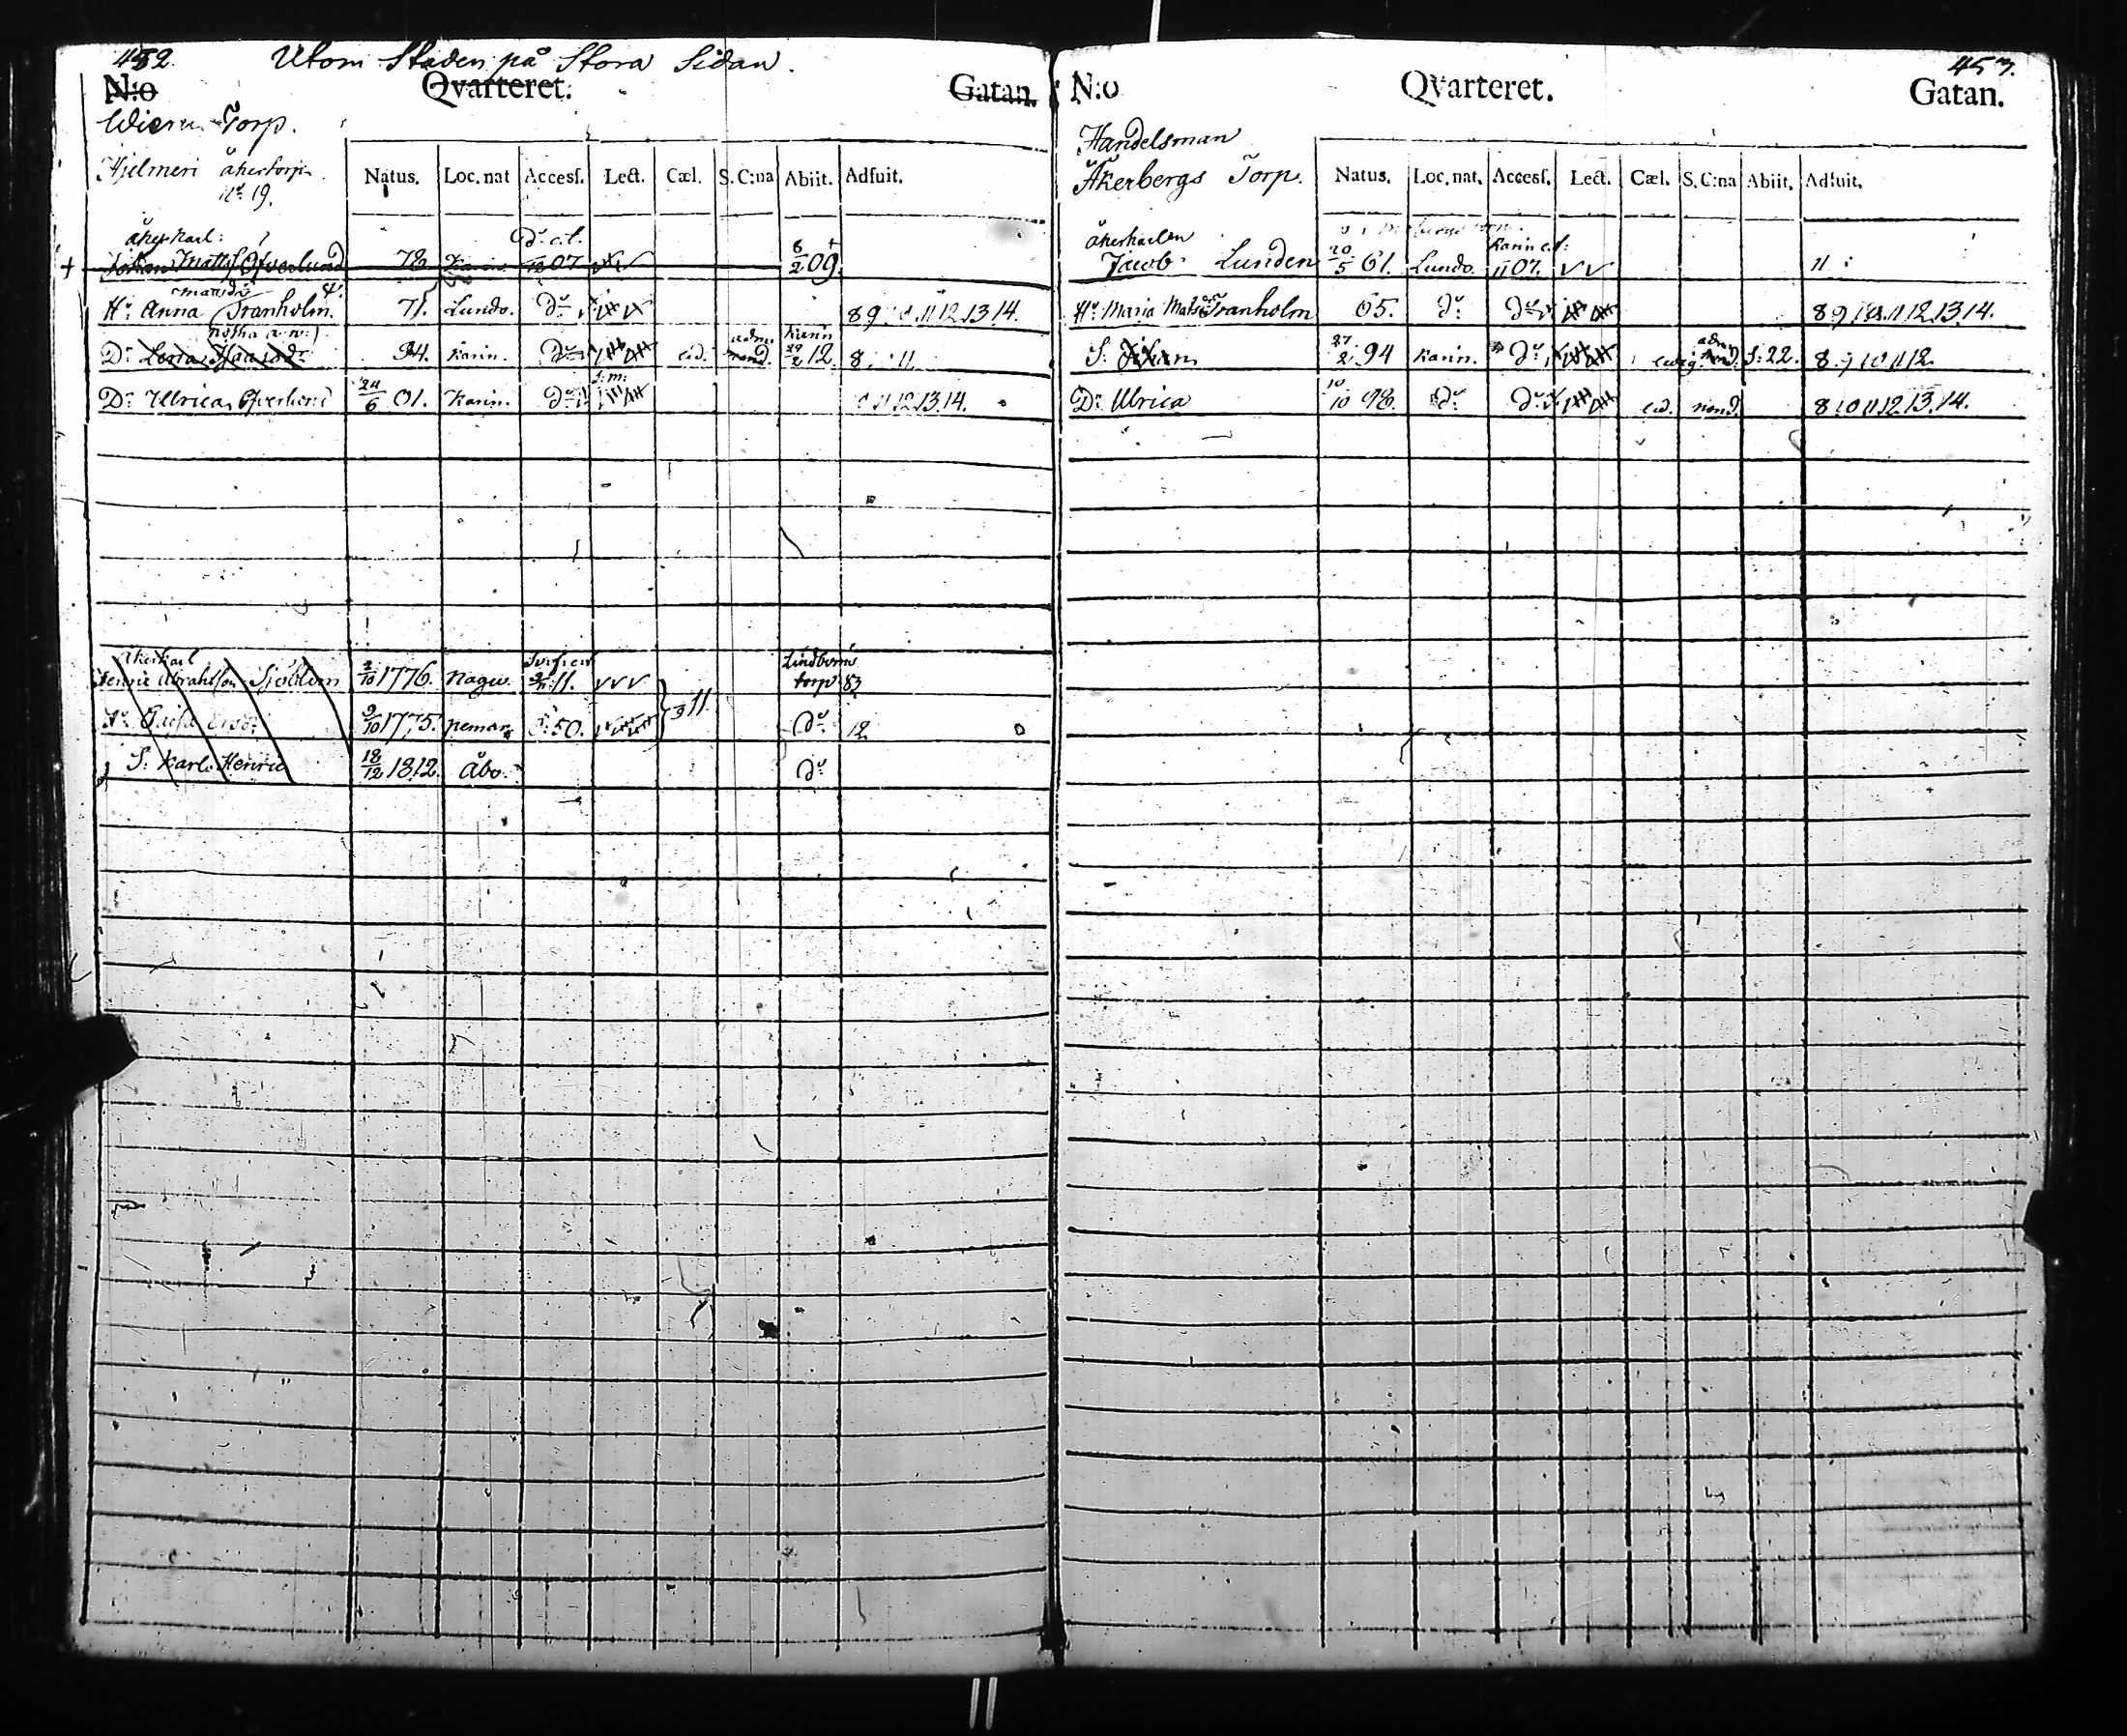 452. Utom Staden på Stora Sidan.
N:o Qvarteret. Gatan.
Torp.
Hjelmeri åkertorp
No 19.
Natus. Loc. nat Accesf. Lect. Cæl. S. C:na Abiit. Adfuit.
åkerkarl: do c.l.
Johan Matts Öfverlund 78 Karin 07 8/2 09
Matsdr
Hu Anna Tranholm. 71. Lundo. do 8 9 11 12 13 14.
Karin
Dr Lena 94. Karin. do cd. 29/2 12. 8 11
Dr Ulrica Öfverlund 24/6 01. Karin. do 11 12 13. 14.
Åkerkarl Lindboms
Henric Abrahsson Sjöblom 2/10 1776. Nagu. 11. torp 83
Hu Caisa Ersdr 9/10 1775. pemar. S: 50. 11 do 12
S: Karl Henric 18/12 1812. Åbo. do
453.
N:o Qvarteret. Gatan.
Handelsman
Åkerbergs Torp.
Natus. Loc. nat. Accesf. Lect. Cæl. S. C:na Abiit. Adfuit.
åkerkarlen Karin c.f:
Jacob Lunden 20/5 61. Lundo. 11 07. 11
Hu Maria Matsdr Tranholm 65. do do 8 9 10 11 12 13. 14.
S: Johan 27/2 94 Karin. do S: 22. 8 9 10 11 12
Dr Ulrica 10/10 98. do do cd. nond. 8 10 11 12. 13. 14.